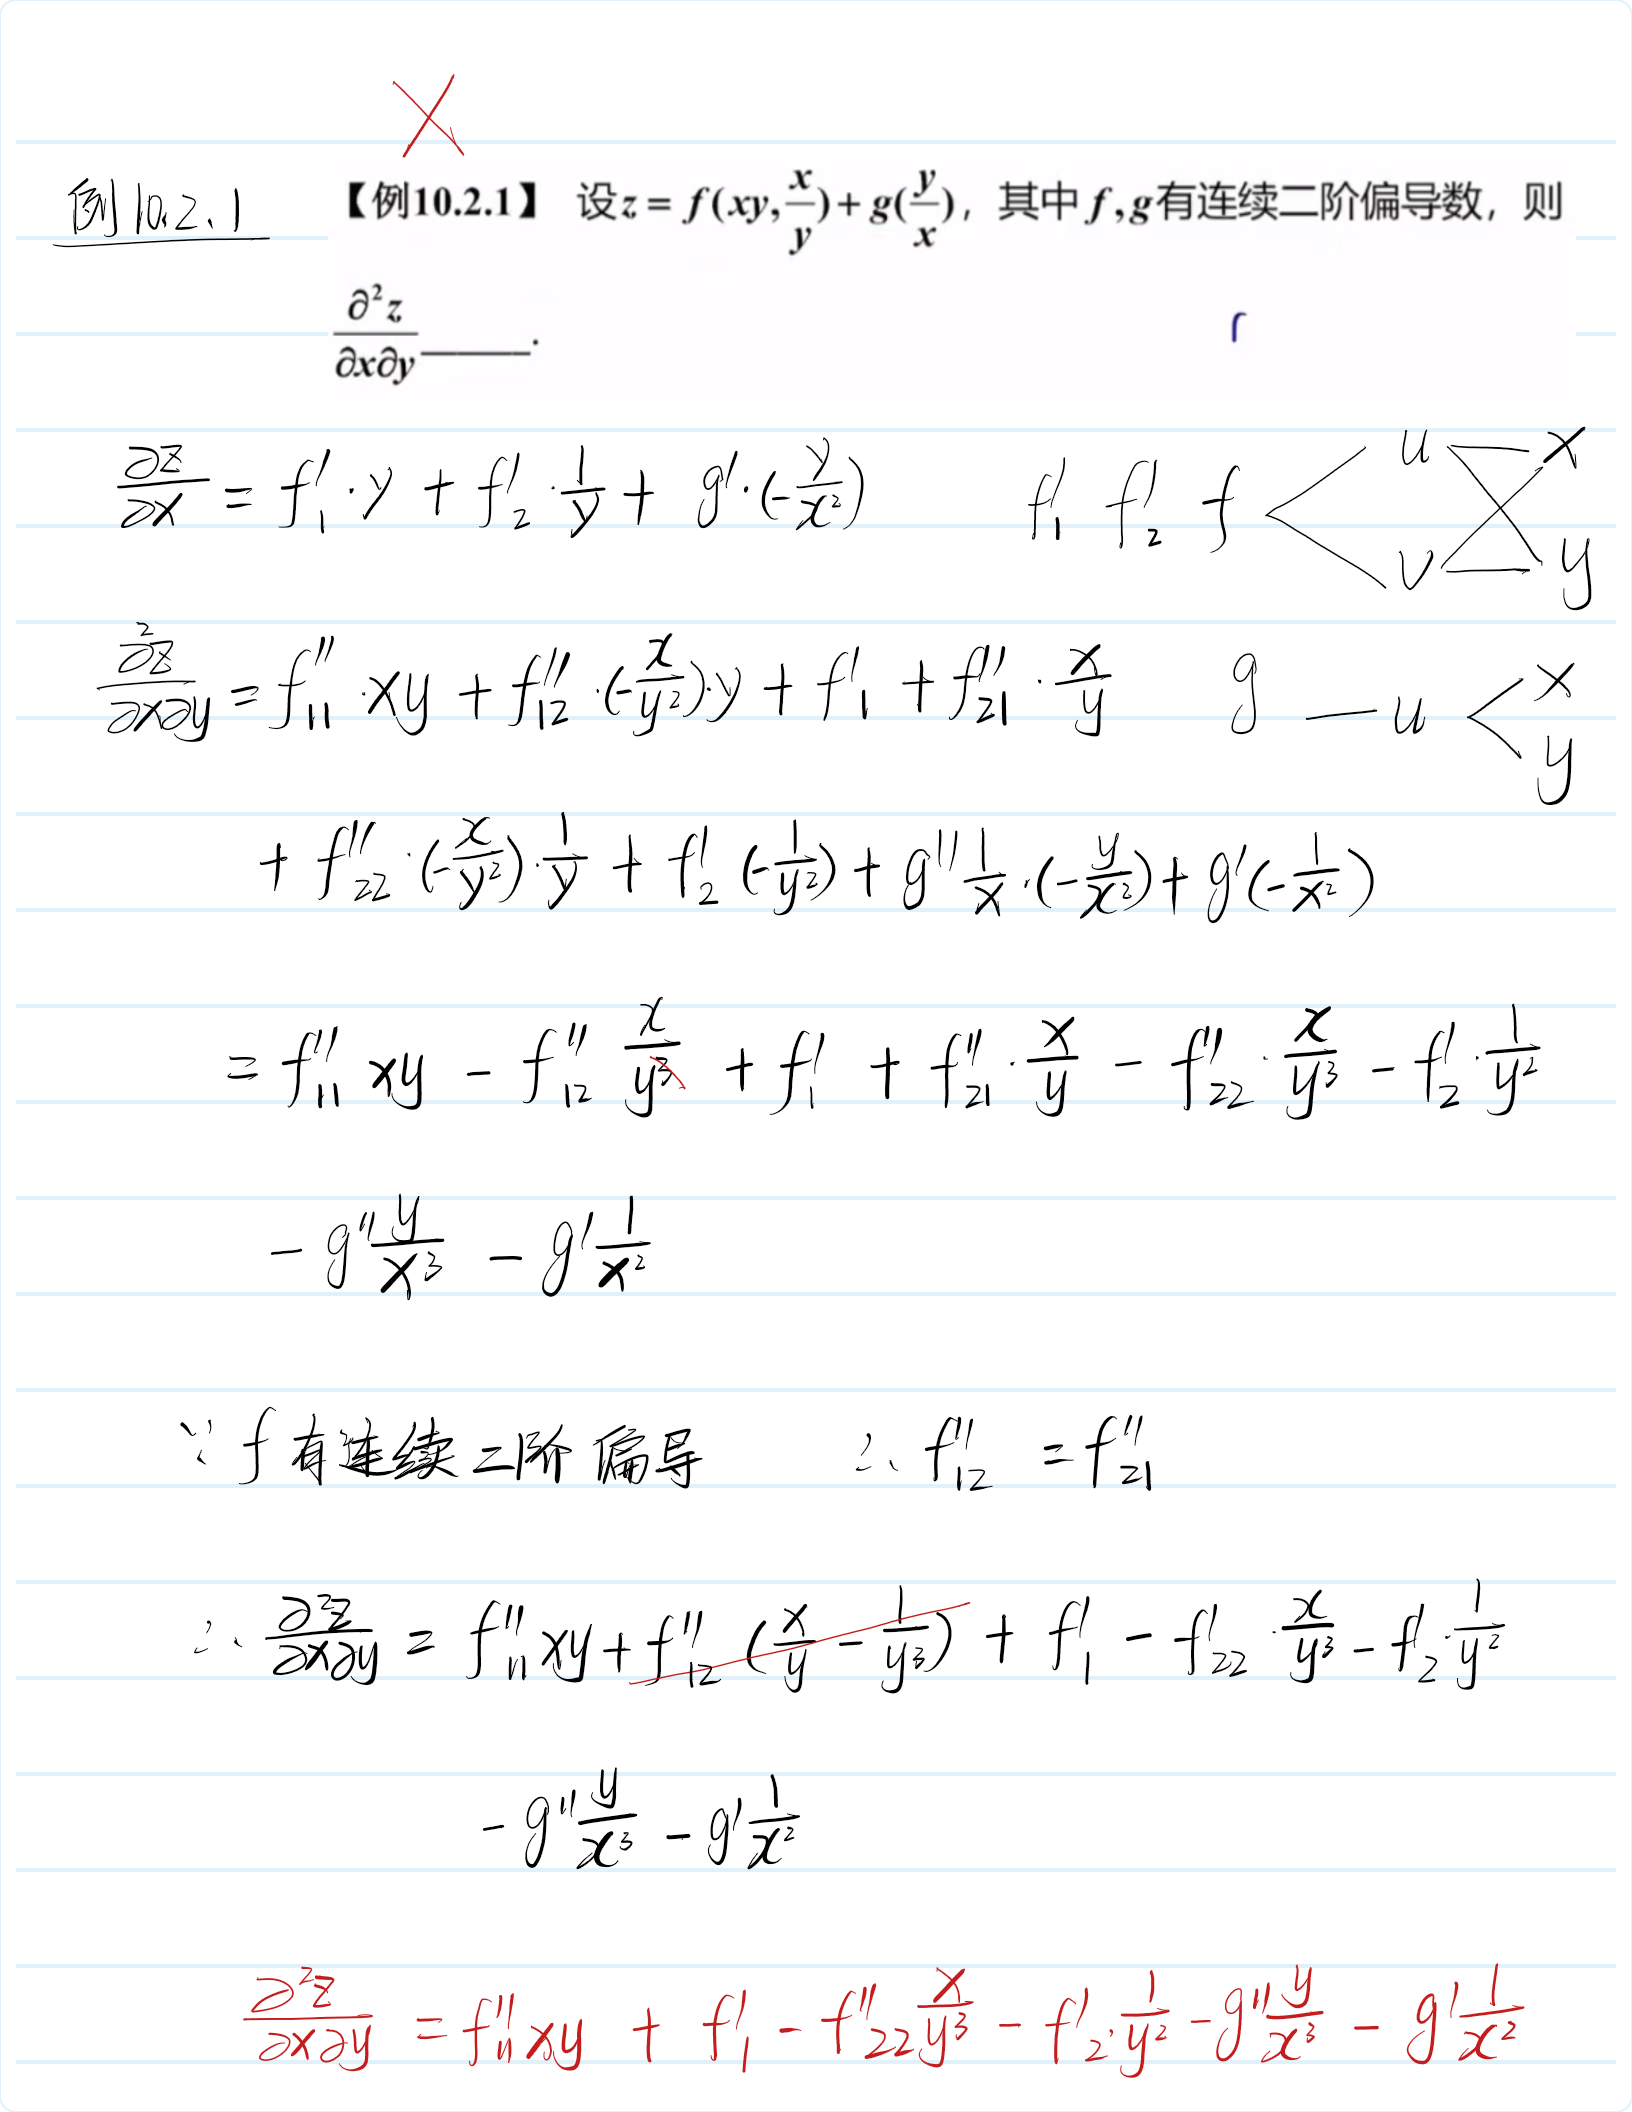 ×
例10.2.1 【例10.2.1】 设 z = f(xy, x/y) + g(y/x)，其中 f, g 有连续二阶偏导数，则
∂²z/∂x∂y ______.
∂z/∂x = f₁′·y + f₂′·1/y + g′·(-y/x²) f₁′ f₂′ f < u v x y
∂²z/∂x∂y = f₁₁″·xy + f₁₂″·(-x/y²)·y + f₁′ + f₂₁″·x/y g — u < x y
+ f₂₂″·(-x/y²)·1/y + f₂′(-1/y²) + g″ 1/x·(-y/x²) + g′(-1/x²)
= f₁₁″ xy - f₁₂″ x/y³ + f₁′ + f₂₁″·x/y - f₂₂″·x/y³ - f₂′·1/y²
- g″ y/x³ - g′ 1/x²
∵ f 有连续二阶偏导 ∴ f₁₂″ = f₂₁″
∴ ∂²z/∂x∂y = f₁₁″ xy + f₁₂″ (x/y - 1/y³) + f₁′ - f₂₂′·x/y³ - f₂′·1/y²
- g″ y/x³ - g′ 1/x²
∂²z/∂x∂y = f₁₁″ xy + f₁′ - f₂₂″ x/y³ - f₂′·1/y² - g″ y/x³ - g′ 1/x²